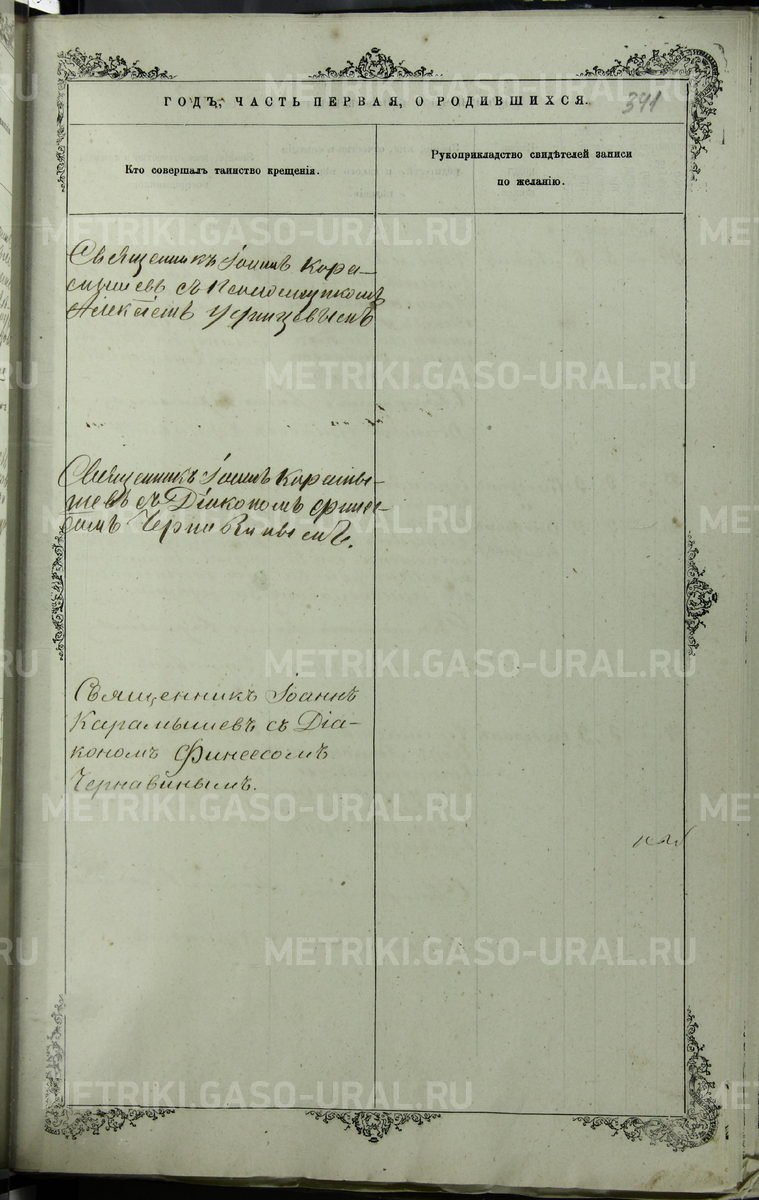 ГОДЪ, ЧАСТЬ ПЕРВАЯ, О РОДИВШИХСЯ. 371
Кто совершалъ таинство крещенія.
Рукоприкладство свидѣтелей записи
по желанію.
Священникъ Іоаннъ Кара-
мышевъ съ
Алексѣемъ
Священникъ Іоаннъ Карамы-
шевъ съ Діакономъ Финее-
сомъ Чернавинымъ.
Священникъ Іоаннъ
Карамышевъ съ Діа-
кономъ Финеесомъ
Чернавинымъ.
METRIKI.GASO-URAL.RU